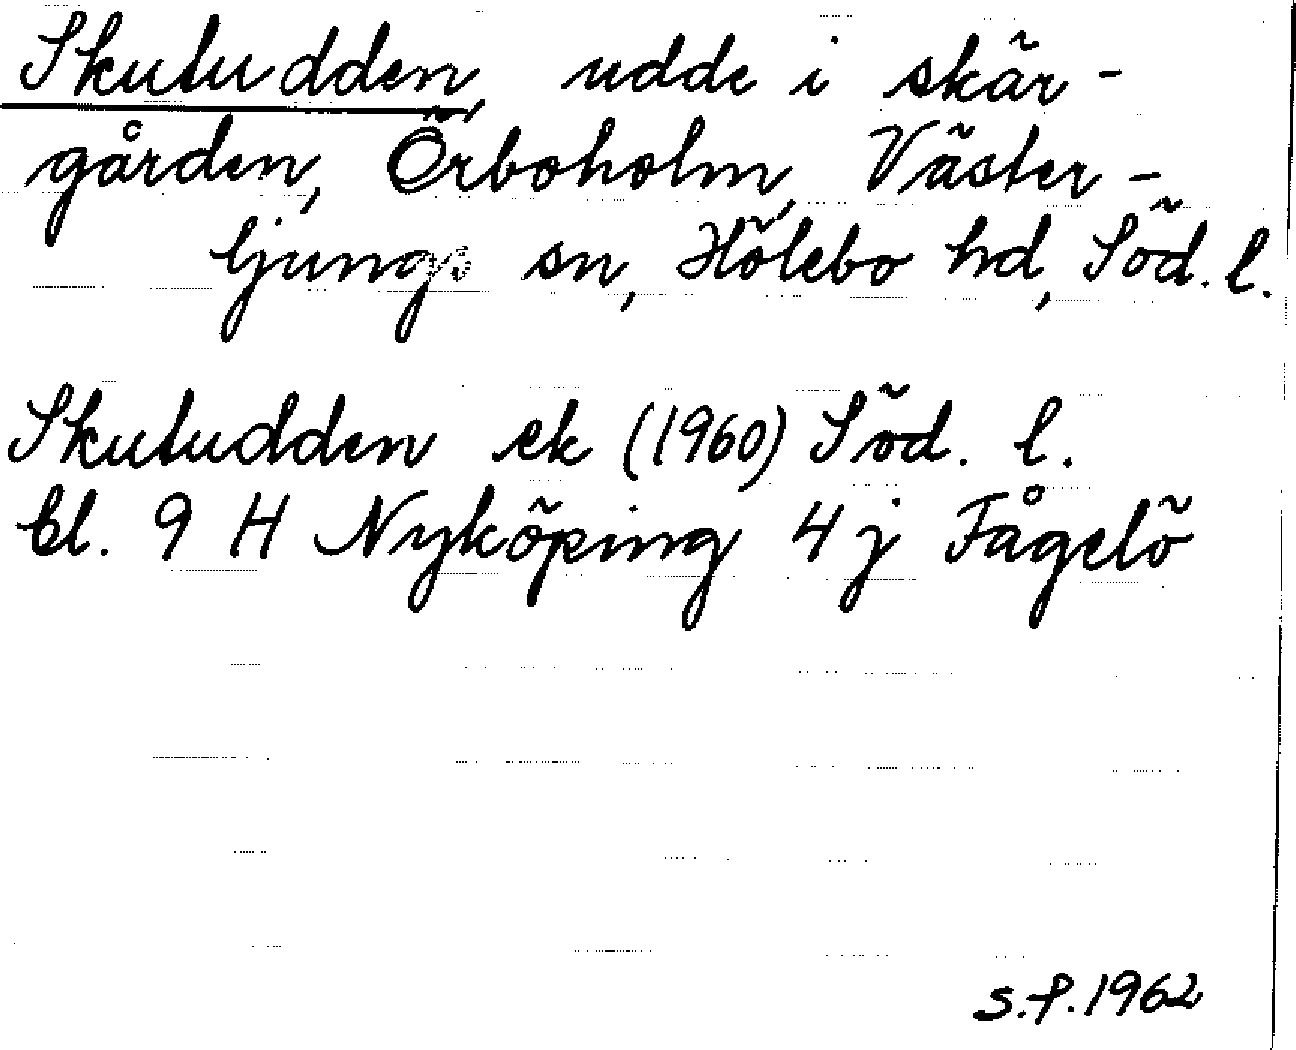 Skutudden, udde i skär-
gården, Örboholm, Väster-
ljungs sn, Hölebo hd, Söd. l.
Skutudden ek (1960) Söd. l.
bl. 9 H Nyköping 4 j Fågelö
S.P.1962